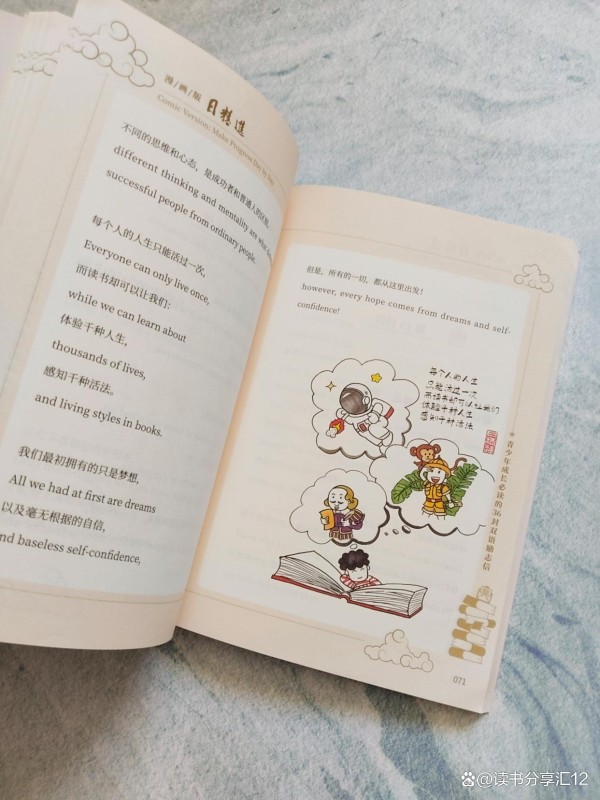 漫/画/版 日精进
Comic Version: Make Progress Day by Day
不同的思维和心态，是成功者和普通人的区别。
different thinking and mentality are what
successful people from ordinary people.
每个人的人生只能活过一次，
Everyone can only live once,
而读书却可以让我们：
while we can learn about
体验千种人生，
thousands of lives,
感知千种活法。
and living styles in books.
我们最初拥有的只是梦想，
All we had at first are dreams
以及毫无根据的自信，
and baseless self-confidence,
但是，所有的一切，都从这里出发！
however, every hope comes from dreams and self-
confidence!
每个人的人生
只能活过一次
而读书却可以让我们
体验千种人生
感知千种活法
青少年成长必读的36封双语励志信
071
@读书分享汇12